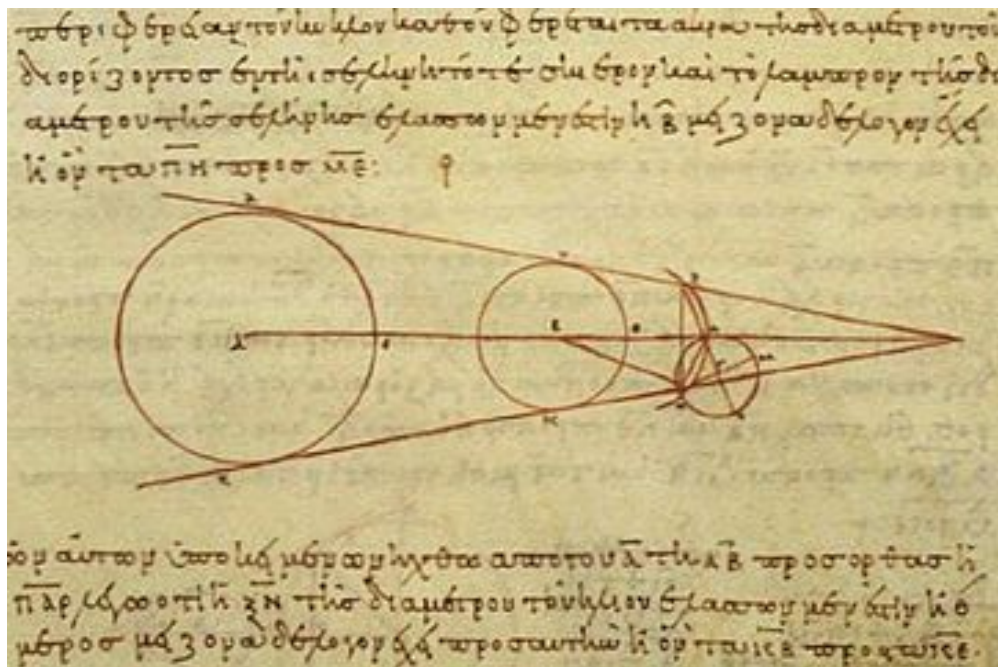 περιφέρειαν τὸν κύκλον καθ' ὃν φέρεται τὰ ἄκρα τῆς διαμέτρου τοῦ
διορίζοντος ἐν τῆι σελήνηι τό τε σκιερὸν καὶ τὸ λαμπρὸν τῆς δι
αμέτρου τῆς σελήνης ἐλάσσων μέν ἐστιν ἢ β̄ μείζονα δὲ λόγον ἔχει
ἢ ὃν τὰ π̄η̄ πρὸς μ̄ε̄:
τῶν αὐτῶν ὑποκειμένων ἤχθω ἀπὸ τοῦ Ᾱ τῆι ᾹΒ̄ πρὸς ὀρθὰς ἡ
Π̄Ᾱρ̄ λέγω ὅτι ἡ Ξ̄Ν̄ τῆς διαμέτρου τοῦ ἡλίου ἐλάσσων μέν ἐστιν ἢ θ̄
μέρος μείζονα δὲ λόγον ἔχει πρὸς αὐτὴν ἢ ὃν τὰ